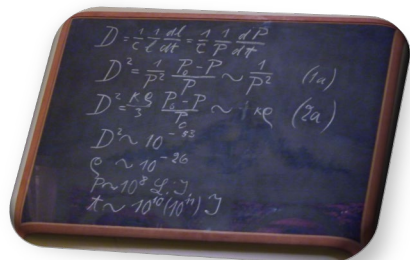 D = 1/c 1/l dl/dt = 1/c 1/P dP/dt
D² = 1/P² P₀-P/P ~ 1/P² (1a)
D² = κρ/3 P₀-P/P ~ κρ (2a)
D² ~ 10⁻⁵³
ρ ~ 10⁻²⁶
P ~ 10⁸ L.J
t ~ 10¹⁰(10¹¹) J